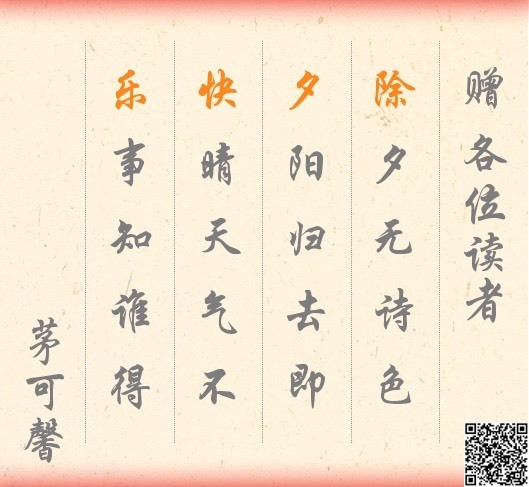 赠各位读者
除夕无诗色
夕阳归去即
快晴天气不
乐事知谁得
茅可馨